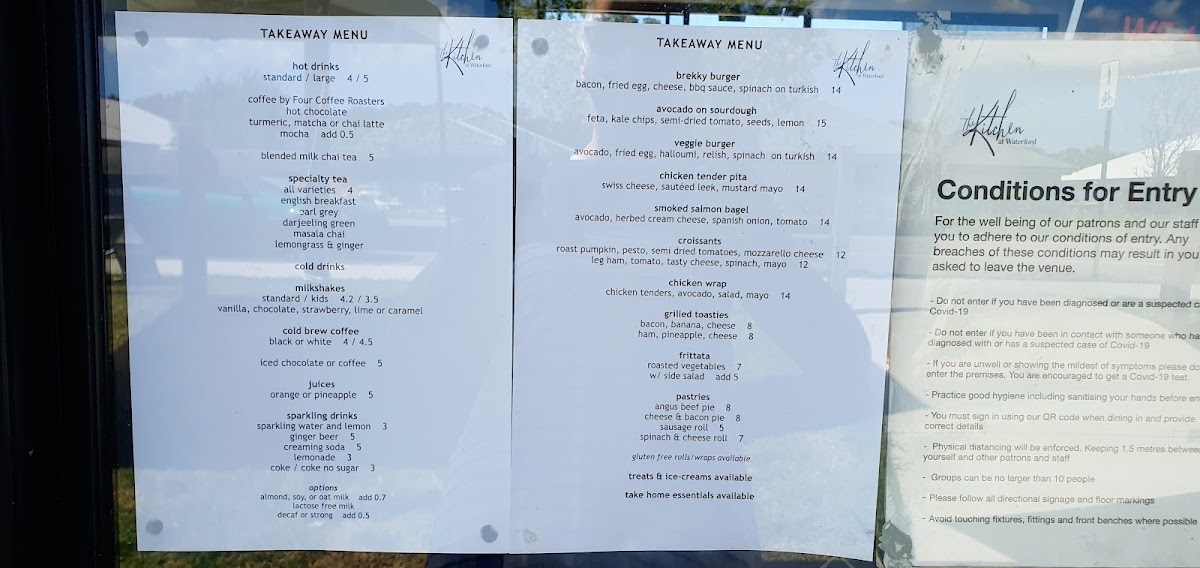 TAKEAWAY MENU
The Kitchen
at Waterford
hot drinks
standard / large 4 / 5
coffee by Four Coffee Roasters
hot chocolate
turmeric, matcha or chai latte
mocha add 0.5
blended milk chai tea 5
specialty tea
all varieties 4
english breakfast
earl grey
darjeeling green
masala chai
lemongrass & ginger
cold drinks
milkshakes
standard / kids 4.2 / 3.5
vanilla, chocolate, strawberry, lime or caramel
cold brew coffee
black or white 4 / 4.5
iced chocolate or coffee 5
juices
orange or pineapple 5
sparkling drinks
sparkling water and lemon 3
ginger beer 5
creaming soda 5
lemonade 3
coke / coke no sugar 3
options
almond, soy, or oat milk add 0.7
lactose free milk
decaf or strong add 0.5
TAKEAWAY MENU
The Kitchen
at Waterford
brekky burger
bacon, fried egg, cheese, bbq sauce, spinach on turkish 14
avocado on sourdough
feta, kale chips, semi-dried tomato, seeds, lemon 15
veggie burger
avocado, fried egg, halloumi, relish, spinach on turkish 14
chicken tender pita
swiss cheese, sautéed leek, mustard mayo 14
smoked salmon bagel
avocado, herbed cream cheese, spanish onion, tomato 14
croissants
roast pumpkin, pesto, semi dried tomatoes, mozzarello cheese 12
leg ham, tomato, tasty cheese, spinach, mayo 12
chicken wrap
chicken tenders, avocado, salad, mayo 14
grilled toasties
bacon, banana, cheese 8
ham, pineapple, cheese 8
frittata
roasted vegetables 7
w/ side salad add 5
pastries
angus beef pie 8
cheese & bacon pie 8
sausage roll 5
spinach & cheese roll 7
gluten free rolls/wraps available
treats & ice-creams available
take home essentials available
The Kitchen
at Waterford
Conditions for Entry
For the well being of our patrons and our staff
you to adhere to our conditions of entry. Any
breaches of these conditions may result in you
asked to leave the venue.
- Do not enter if you have been diagnosed or are a suspected
Covid-19
- Do not enter if you have been in contact with someone who
diagnosed with or has a suspected case of Covid-19
- If you are unwell or showing the mildest of symptoms please do
enter the premises. You are encouraged to get a Covid-19 test.
- Practice good hygiene including sanitising your hands before
- You must sign in using our QR code when dining in and provide
correct details
- Physical distancing will be enforced. Keeping 1.5 metres
yourself and other patrons and staff
- Groups can be no larger than 10 people
- Please follow all directional signage and floor markings
- Avoid touching fixtures, fittings and front benches where possible